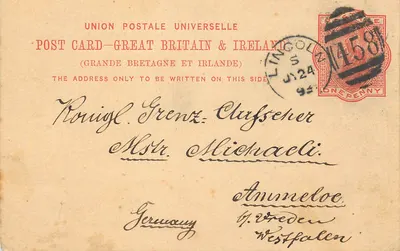 UNION POSTALE UNIVERSELLE
POST CARD–GREAT BRITAIN & IRELAND
(GRANDE BRETAGNE ET IRLANDE)
THE ADDRESS ONLY TO BE WRITTEN ON THIS SIDE
LINCOLN
S
JY 24
93
458
ONE PENNY
Königl. Grenz-Aufseher
Mstr. Michaeli.
Ammeloe
b/ Vreden
Germany
Westfalen